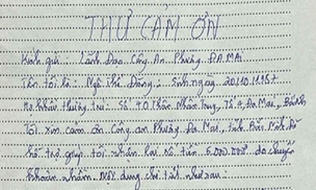 THƯ CẢM ƠN
Kính gửi: Lãnh Đạo Công An Phường ĐA MAI
Tên tôi là: Ngô Thế Đăng: Sinh ngày 20/10/1957
Hộ khẩu thường trú: Số 40 Trần Nhân Trung, Tổ 4, Đa Mai,
Tôi xin cảm ơn Công an Phường Đa Mai, tỉnh Bắc Ninh đã
hỗ trợ giúp tôi nhận lại số tiền 5.000.000đ do chuyển
khoản nhầm. Nội dung chi tiết như sau: